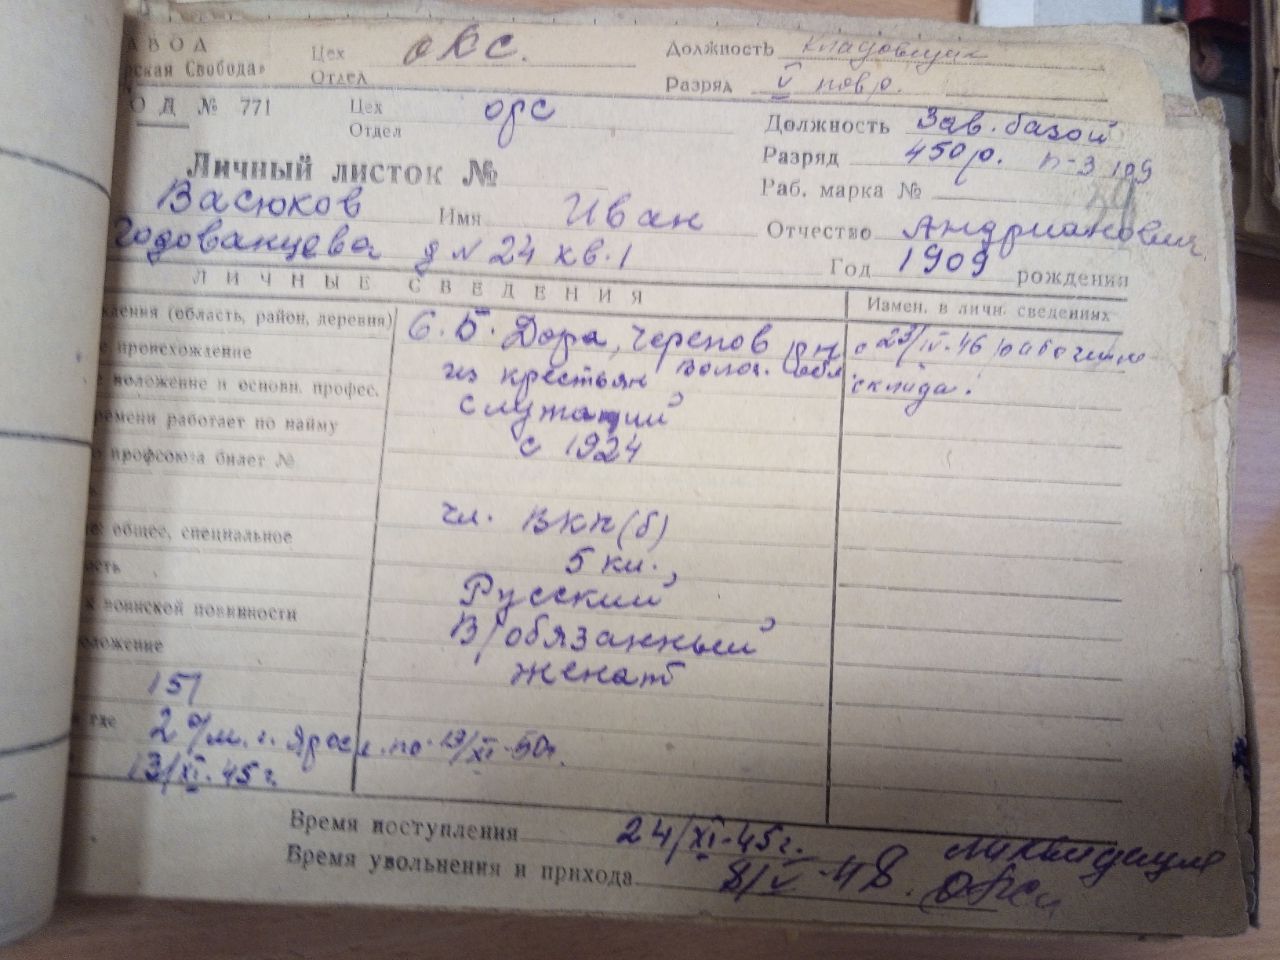 АВОД Цех ОКС. Должность кладовщик
рская Свобода» Отдел Разряд V повр.
ОД № 771 Цех орс Должность Зав. базой
Отдел Разряд 450р. п-3 109
Личный листок № Раб. марка №
Васюков Имя Иван Отчество Андрианович
Годованцева д № 24 кв. 1 Год 1909 рождения
ЛИЧНЫЕ СВЕДЕНИЯ Измен. в личн. сведениях
ждения (область, район, деревня) С. Б. Дора, Черепов рн с 23/IV-46 рабочим
е происхождение из крестьян Волог. обл склада.
е положение и основн. профес. служащий
ремени работает по найму с 1924
профсоюза билет №
чл. ВКП(б)
е: общее, специальное 5 кл.
ость Русский
к воинской повинности в/обязанный
положение женат
151
и где 2 о/м. г. Яросл. по 13/XI-50г.
13/XI-45г.
Время поступления 24/XI-45г.
Время увольнения и прихода 8/V-48. ликвидация
ОРСа